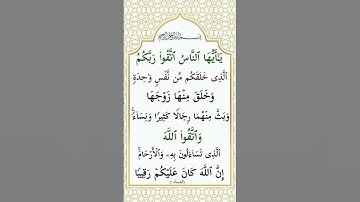 يَـٰٓأَيُّهَا ٱلنَّاسُ ٱتَّقُوا۟ رَبَّكُمُ
ٱلَّذِى خَلَقَكُم مِّن نَّفْسٍ وَٰحِدَةٍ
وَخَلَقَ مِنْهَا زَوْجَهَا
وَبَثَّ مِنْهُمَا رِجَالًا كَثِيرًا وَنِسَآءً ۚ
وَٱتَّقُوا۟ ٱللَّهَ
ٱلَّذِى تَسَآءَلُونَ بِهِۦ وَٱلْأَرْحَامَ ۚ
إِنَّ ٱللَّهَ كَانَ عَلَيْكُمْ رَقِيبًا